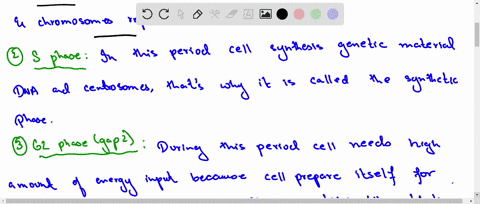 & chromosomes
② S phase: In this period cell synthesis genetic material
DNA and centosomes, that's why it is called the synthetic
phase.
③ G2 phase (gap2): During this period cell needs high
amount of energy input because cell prepare itself for